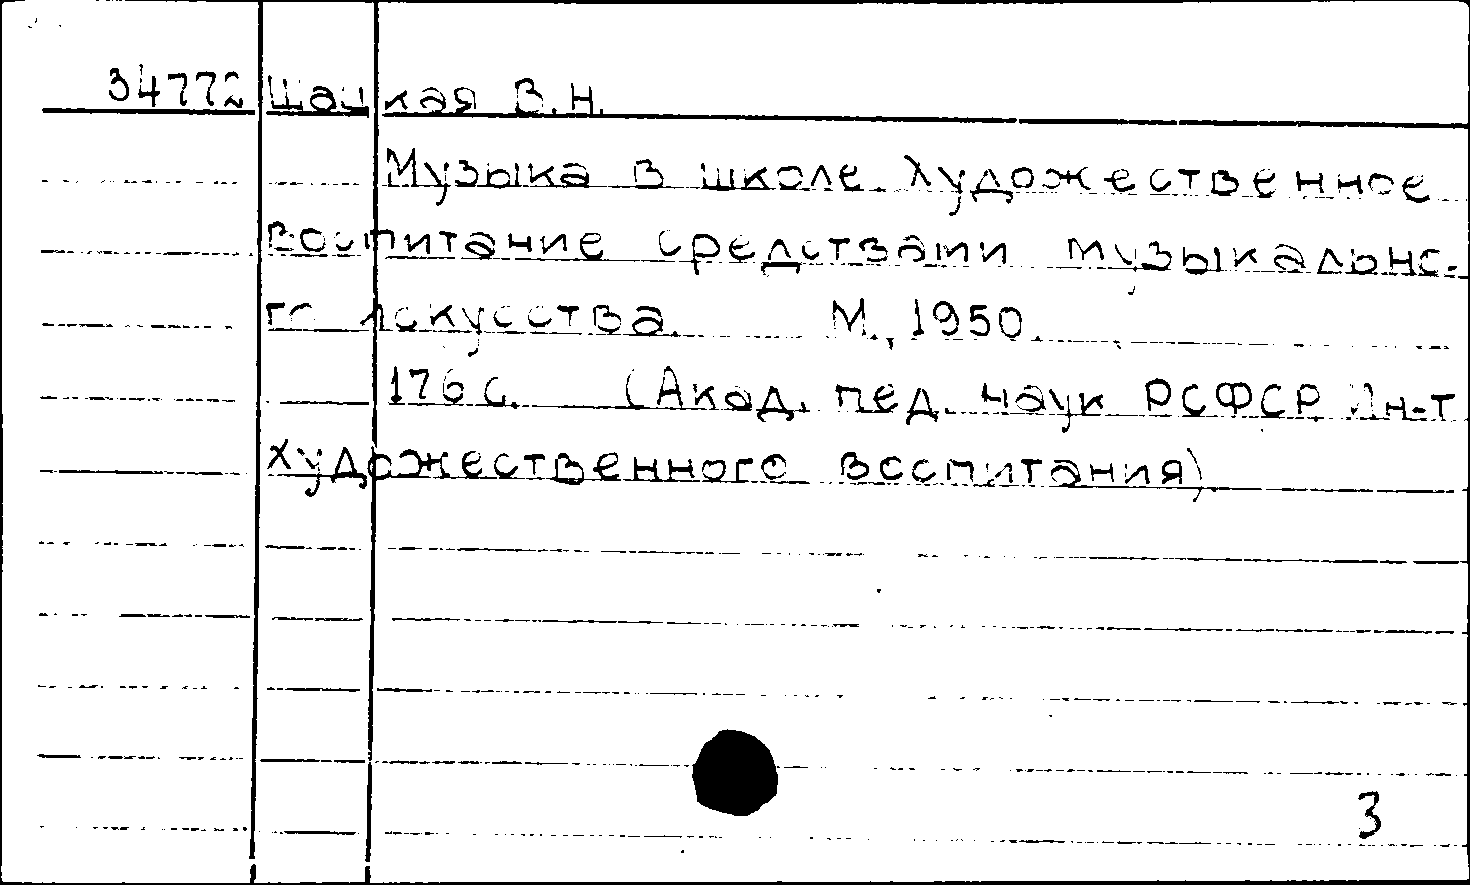 34772 Шацкая В.Н.
Музыка в школе. Художественное
воспитание средствами музыкально-
го искусства. М., 1950.
176 с. (Акад. пед. наук РСФСР Ин-т
художественного воспитания).
3